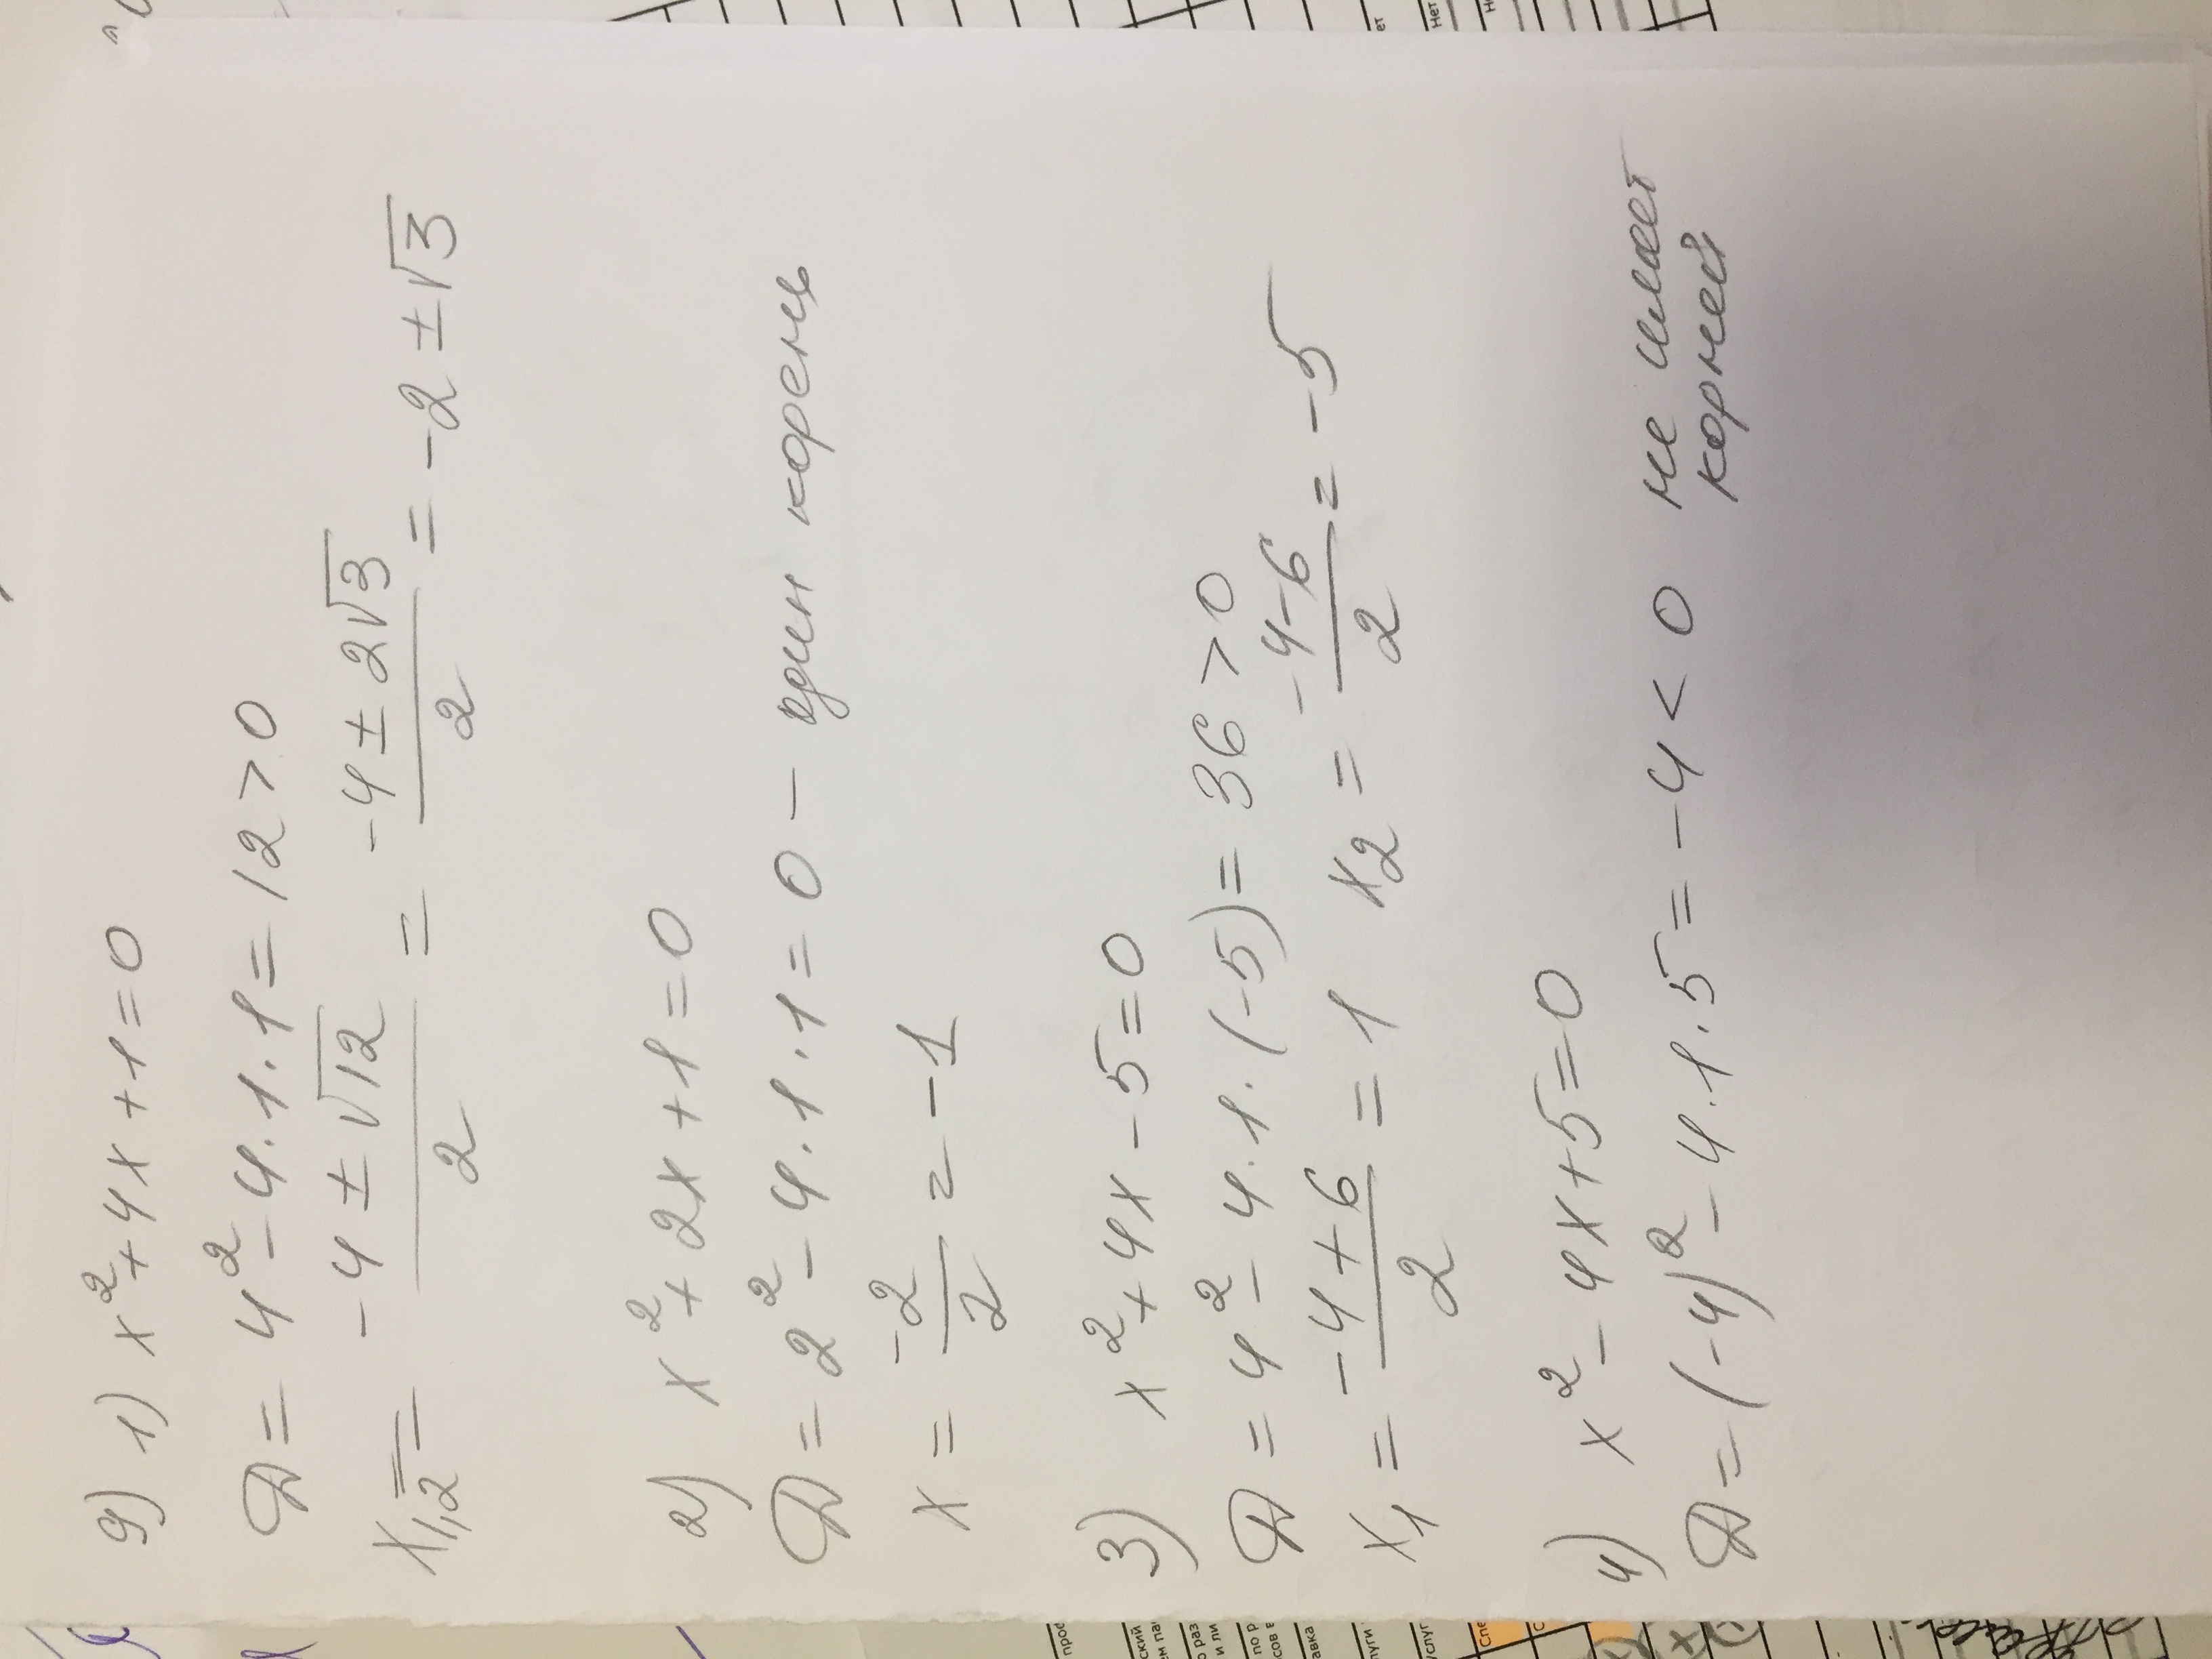 9) 1) x² + 4x + 1 = 0
D = 4² - 4·1·1 = 12 > 0
x₁,₂ = (-4 ± √12)/2 = (-4 ± 2√3)/2 = -2 ± √3
2) x² + 2x + 1 = 0
D = 2² - 4·1·1 = 0 - один корень
x = -2/2 = -1
3) x² + 4x - 5 = 0
D = 4² - 4·1·(-5) = 36 > 0
x₁ = (-4+6)/2 = 1 x₂ = (-4-6)/2 = -5
4) x² - 4x + 5 = 0
D = (-4)² - 4·1·5 = -4 < 0 не имеет
корней